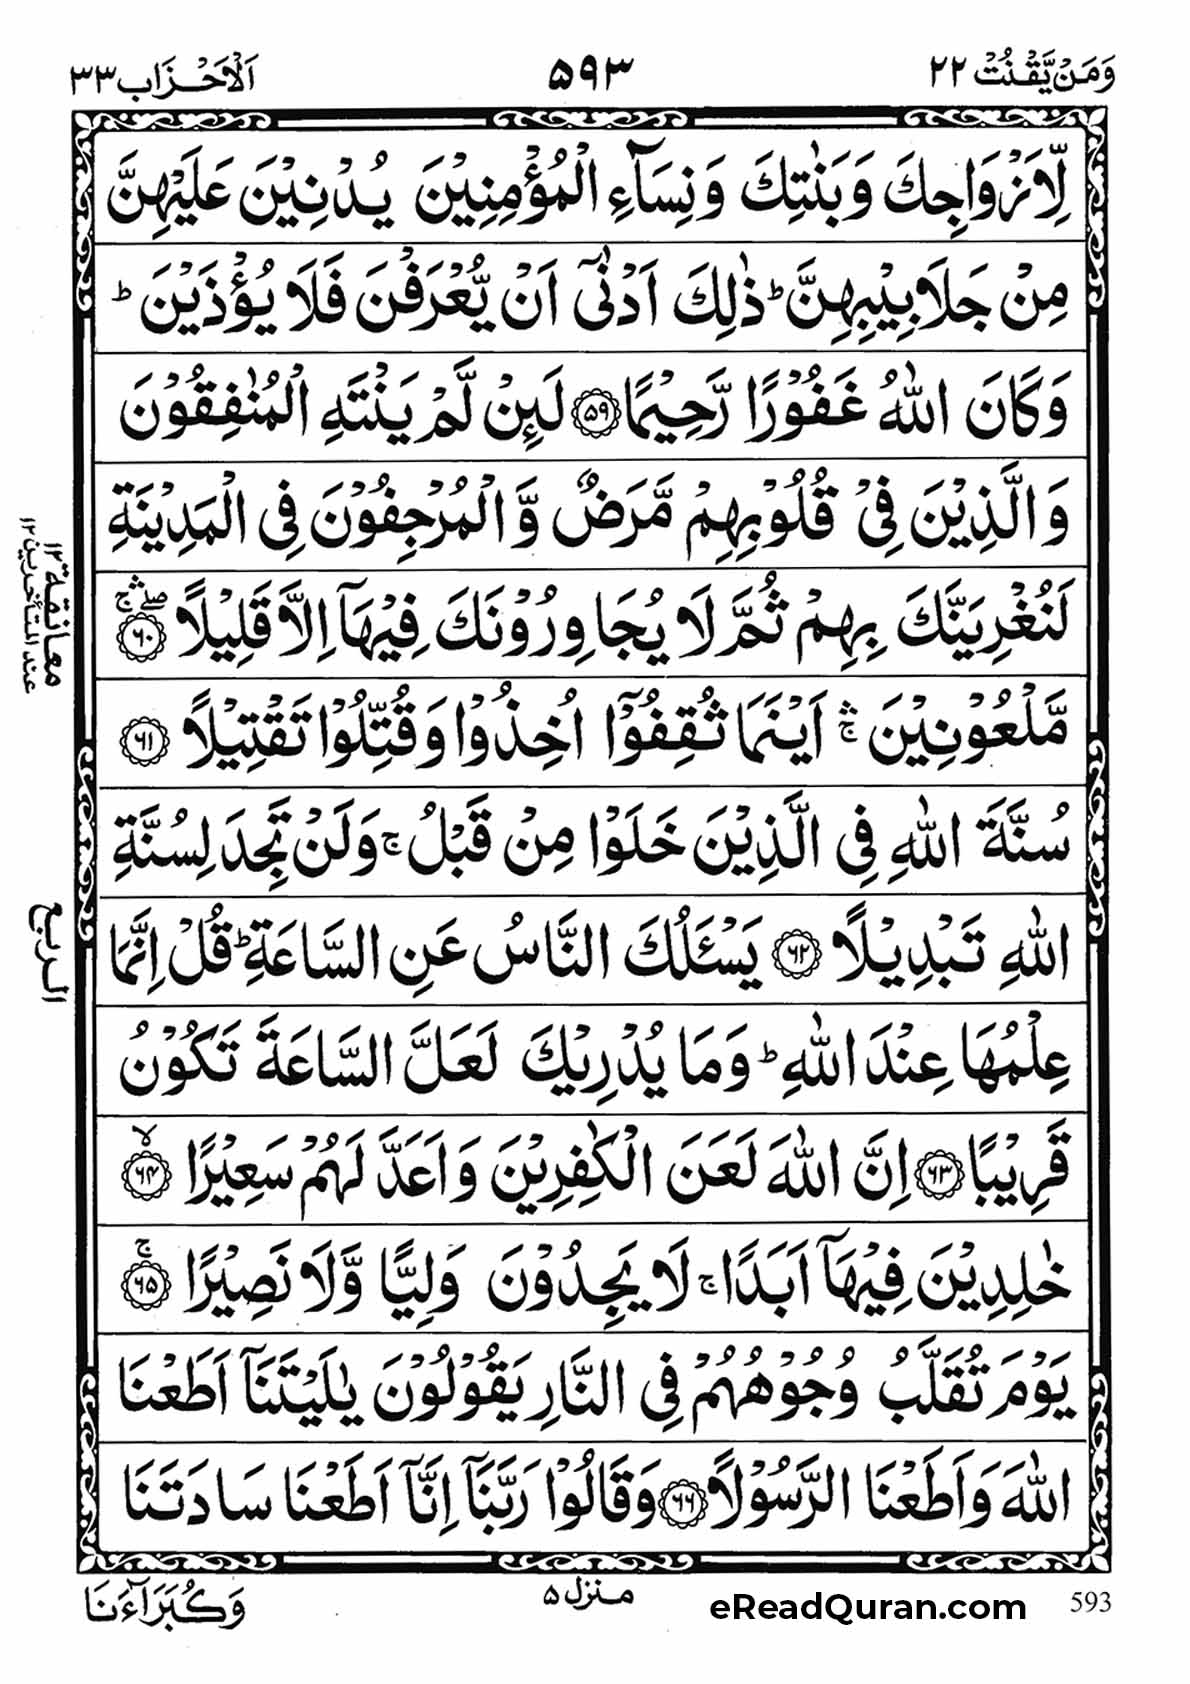 وَمَنْ يَّقْنُتْ ٢٢
٥٩٣
اَلْاَحْزَاب ٣٣
لِّاَزْوَاجِكَ وَبَنٰتِكَ وَنِسَآءِ الْمُؤْمِنِيْنَ يُدْنِيْنَ عَلَيْهِنَّ
مِنْ جَلَابِيْبِهِنَّ ؕ ذٰلِكَ اَدْنٰٓى اَنْ يُّعْرَفْنَ فَلَا يُؤْذَيْنَ ؕ
وَكَانَ اللّٰهُ غَفُوْرًا رَّحِيْمًا ﴿٥٩﴾ لَىِٕنْ لَّمْ يَنْتَهِ الْمُنٰفِقُوْنَ
وَالَّذِيْنَ فِيْ قُلُوْبِهِمْ مَّرَضٌ وَّالْمُرْجِفُوْنَ فِى الْمَدِيْنَةِ
لَنُغْرِيَنَّكَ بِهِمْ ثُمَّ لَا يُجَاوِرُوْنَكَ فِيْهَآ اِلَّا قَلِيْلًا ﴿٦٠﴾
مَّلْعُوْنِيْنَ ۛۚ اَيْنَمَا ثُقِفُوْٓا اُخِذُوْا وَقُتِّلُوْا تَقْتِيْلًا ﴿٦١﴾
سُنَّةَ اللّٰهِ فِى الَّذِيْنَ خَلَوْا مِنْ قَبْلُ ۚ وَلَنْ تَجِدَ لِسُنَّةِ
اللّٰهِ تَبْدِيْلًا ﴿٦٢﴾ يَسْـَٔلُكَ النَّاسُ عَنِ السَّاعَةِ ؕ قُلْ اِنَّمَا
عِلْمُهَا عِنْدَ اللّٰهِ ؕ وَمَا يُدْرِيْكَ لَعَلَّ السَّاعَةَ تَكُوْنُ
قَرِيْبًا ﴿٦٣﴾ اِنَّ اللّٰهَ لَعَنَ الْكٰفِرِيْنَ وَاَعَدَّ لَهُمْ سَعِيْرًا ۙ﴿٦٤﴾
خٰلِدِيْنَ فِيْهَآ اَبَدًا ۚ لَا يَجِدُوْنَ وَلِيًّا وَّلَا نَصِيْرًا ۚ﴿٦٥﴾
يَوْمَ تُقَلَّبُ وُجُوْهُهُمْ فِى النَّارِ يَقُوْلُوْنَ يٰلَيْتَنَآ اَطَعْنَا
اللّٰهَ وَاَطَعْنَا الرَّسُوْلَا ﴿٦٦﴾ وَقَالُوْا رَبَّنَآ اِنَّآ اَطَعْنَا سَادَتَنَا
معانقة ١٢
عند المتأخرين ١٢
الربع
وَكُبَرَآءَنَا
منزل ٥
eReadQuran.com
593